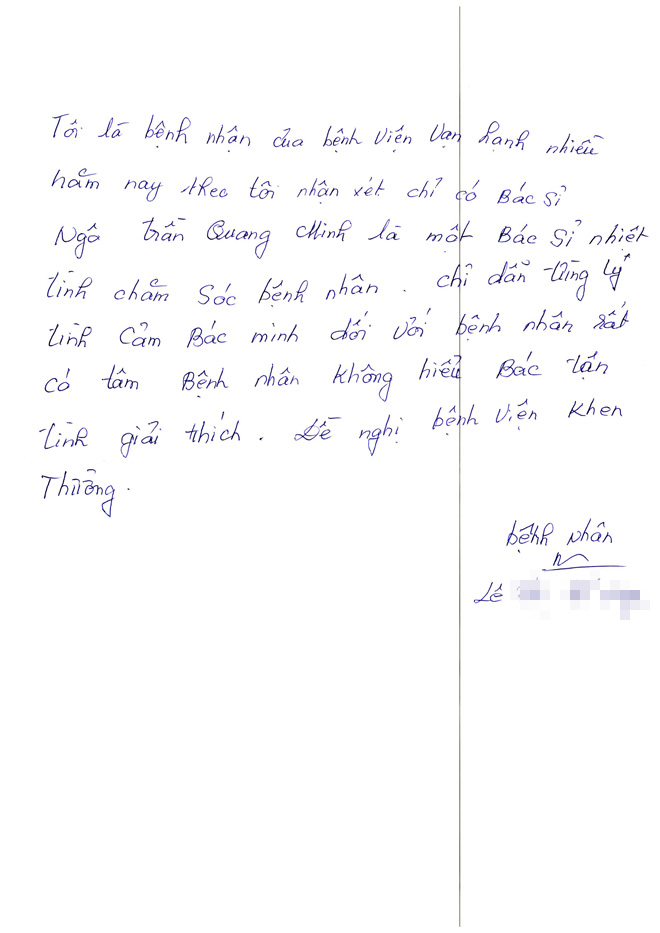 Tôi là bệnh nhận của bệnh viện Vạn hạnh nhiều
năm nay theo tôi nhận xét chỉ có Bác Sĩ
Ngô trần Quang Minh là một Bác Sĩ nhiệt
tình chăm Sóc bệnh nhân. chỉ dẫn từng lý
tình Cảm Bác minh đối với bệnh nhân rất
có tâm Bệnh nhân không hiểu Bác tận
tình giải thích. Đề nghị bệnh viện khen
Thưởng.
bệnh nhân
Lê